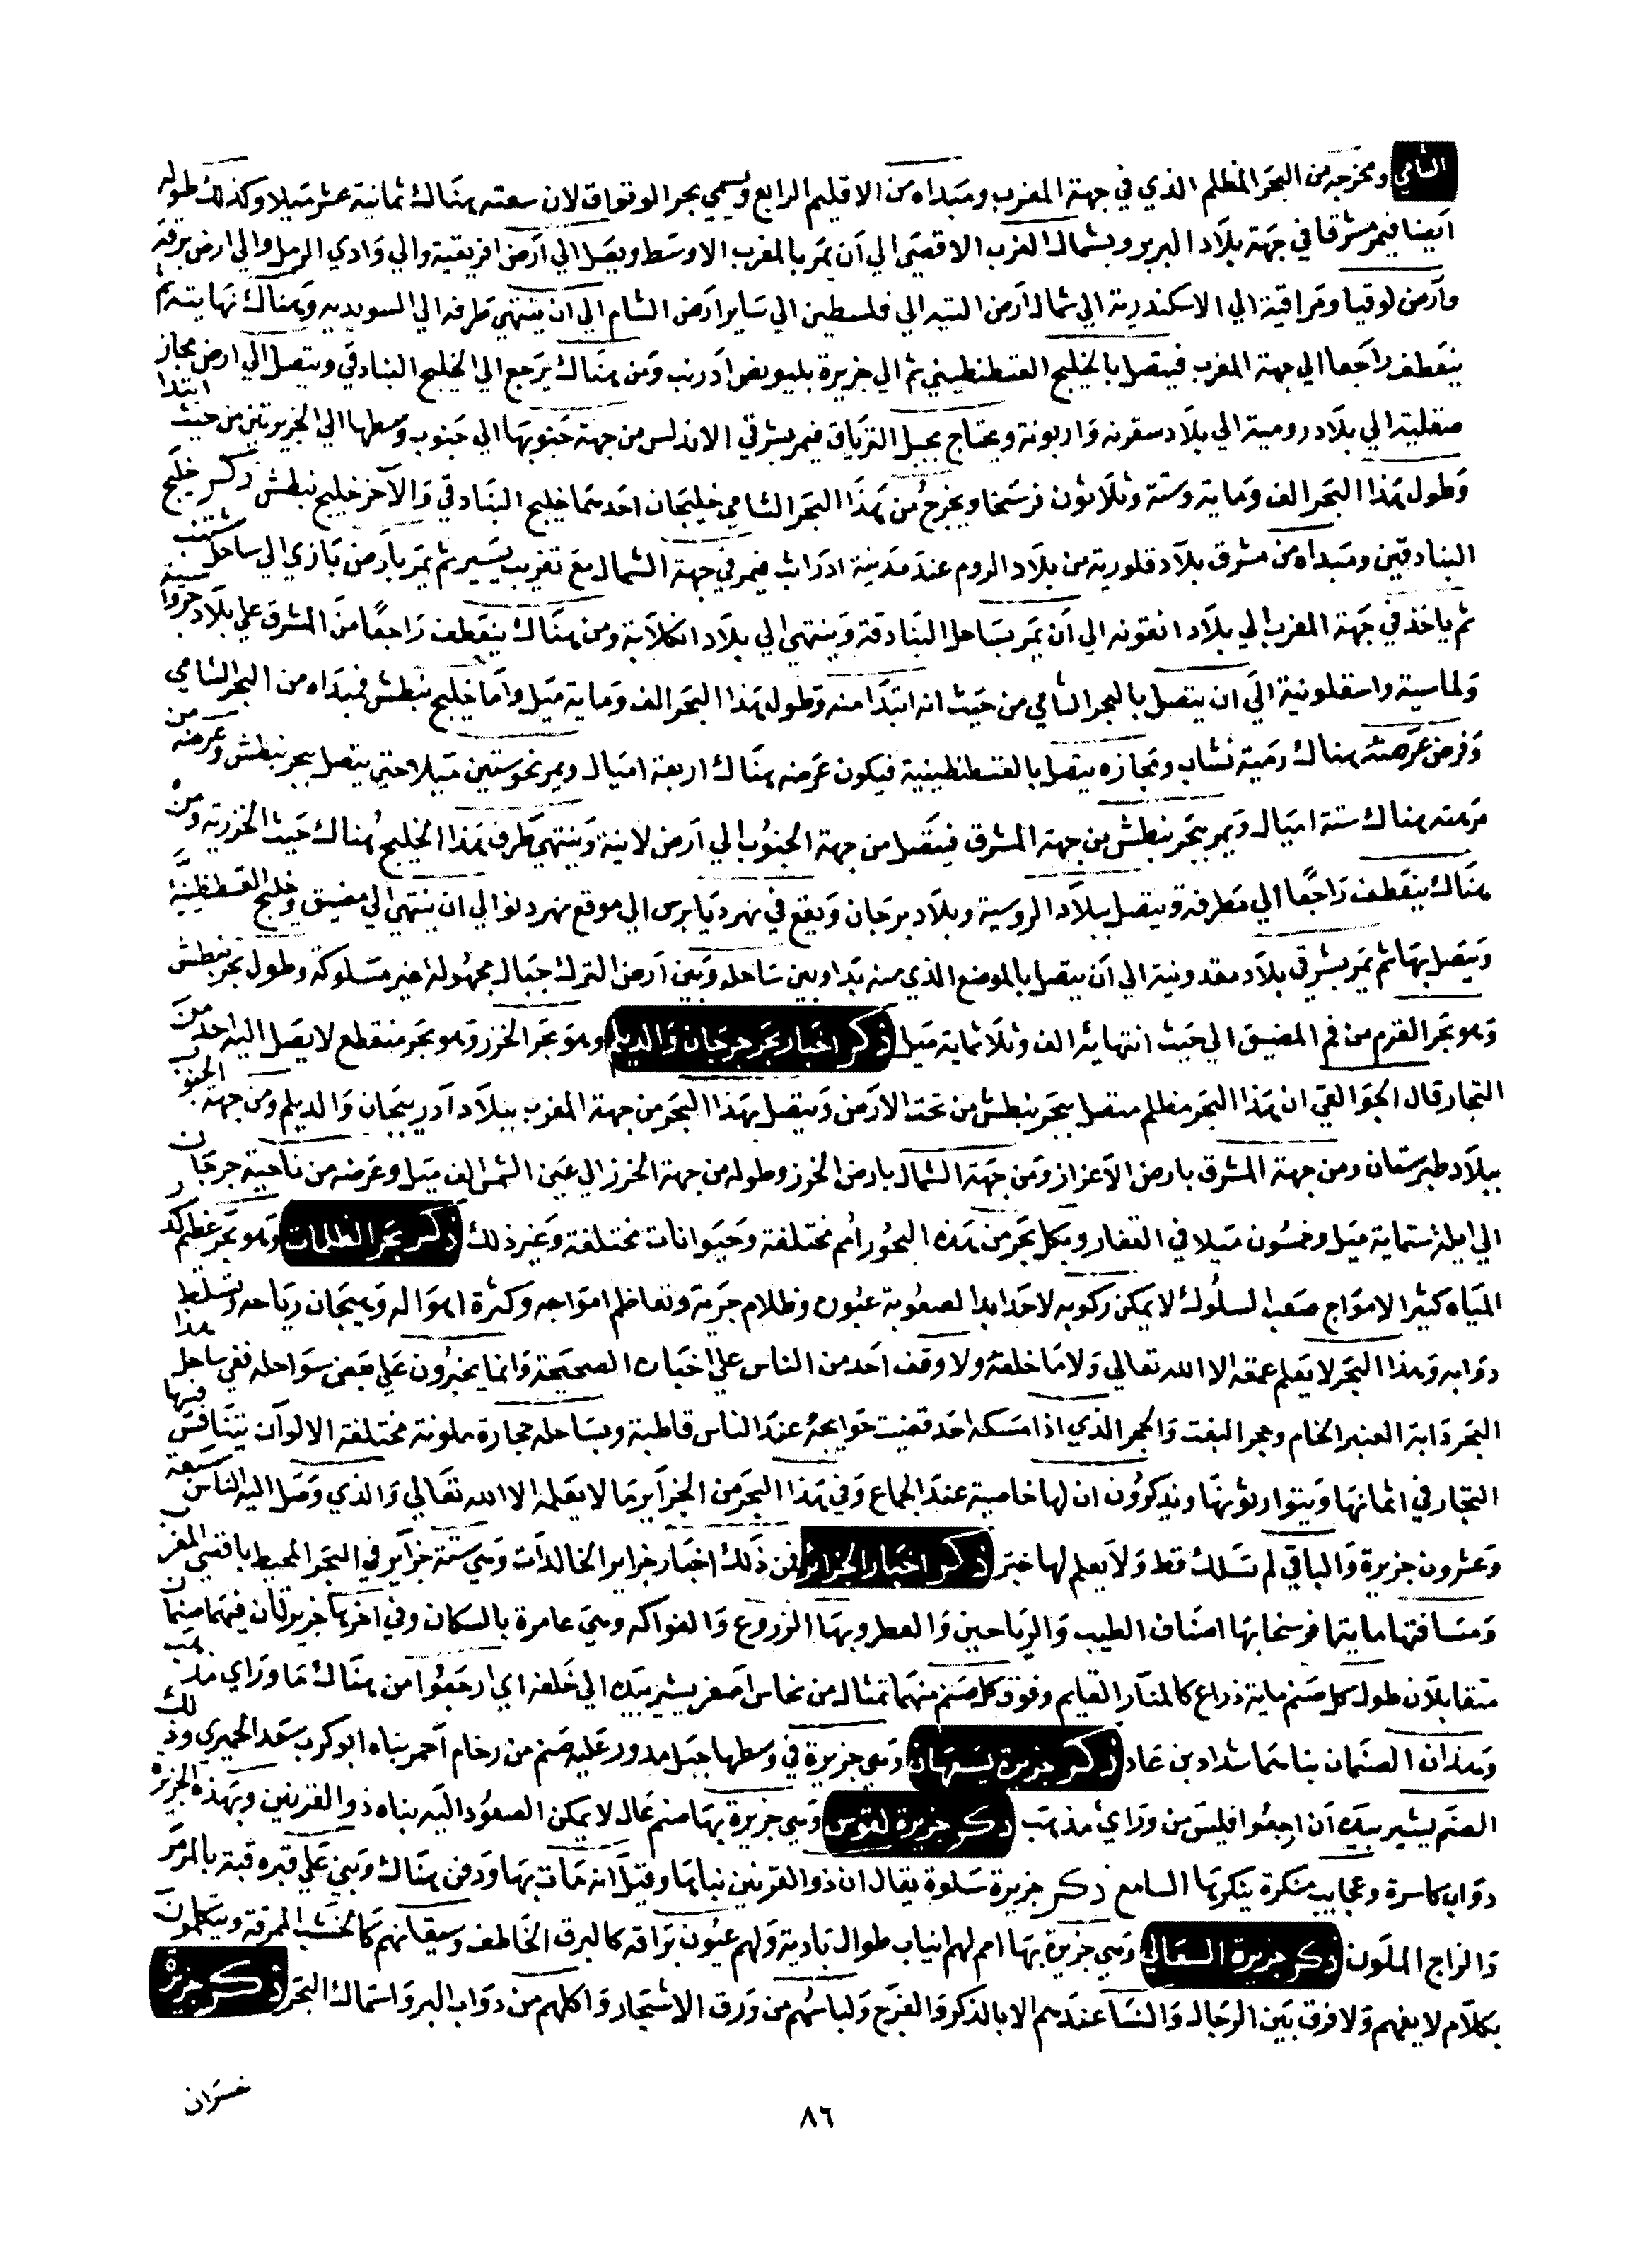 الشامي ومخرجه من البحر المظلم الذي في جهة المغرب ومبداه من الاقليم الرابع ويسمي بحر الوقواق لان سعته هناك ثمانية عشر ميلا وكذلك طوله
ايضا فيمر مشرقا في جهة بلاد البربر وبشمال الغرب الاقصي الي ان يمر بالمغرب الاوسط ويصل الي ارض افريقية والي وادي الرمل والي ارض برقة
وارض لوقيا ومراقية الي الاسكندرية الي شمال ارض التيه الي فلسطين الي ساير ارض الشام الي ان ينتهي طرفه الي السويديه وهناك نهايته ثم
ينعطف راجعا الي جهة المغرب فيتصل بالخليج القسطنطيني ثم الي جزيرة بليونض ادرنب ومن هناك يرجع الي الخليج البنادقي ويتصل الي ارض مجاز
صقلية الي بلاد رومية الي بلاد سقرنه واربونة ويجتاج بجبل الترياق فيمر بشرقي الاندلس من جهة جنوبها الي جنوب وسطها الي الجزيرتين من حيث ابتدا
وطول هذا البحر الف وماية وستة وثلاثون فرسخا ويخرج من هذا البحر الشامي خليجان احدهما خليج البنادقي والآخر خليج نبطش ذكر خليج
البنادقين ومبداه من مشرق بلاد قلورية من بلاد الروم عند مدينة ادرانت فيمر في جهة الشمال مع تغريب يسير ثم يمر بارض بازي الي ساحل شتنب
ثم ياخذ في جهة المغرب الي بلاد انقونه الي ان يمر بساحل البنادقة وينتهي الي بلاد انكلاية ومن هناك ينعطف راجعا من المشرق علي بلاد جرواسية
ولماسية واسقلونية الي ان يتصل بالبحر الشامي من حيث انه ابتدا منه وطول هذا البحر الف وماية ميل واما خليج نبطش فمبداه من البحر الشامي
وفرض عرضه هناك رمية نشاب ومجازه يتصل بالقسطنطينية فيكون عرضه هناك اربعة اميال ويمر نحو ستين ميلا حتي يتصل ببحر نبطش وعرضه من
مرمته هناك ستة اميال ويمر بحر نبطش من جهة المشرق فيتصل من جهة الجنوب الي ارض لانية وينتهي طرف هذا الخليج هناك حيث الخزرية ومن
هناك ينعطف راجعا الي مطرفه ويتصل ببلاد الروسية وبلاد برجان ويقع في نهر ديابرس الي موقع نهر دنوا الي ان ينتهي الي مضيق وخليج القسطنطينية
ويتصل بها ثم يمر بشرقي بلاد مقدونية الي ان يتصل بالموضع الذي منه بدا وبين ساحله وبين ارض الترك جبال مجهولة غير مسلوكة وطول بحر نبطش
وهو بحر القرم من فم المضيق الي حيث انتهائه الف وثلاثماية ميل ذكر اخبار بحر جرجان والديلم وهو بحر الخزر وهو بحر منقطع لا يصل اليه احد من
التجار قال الجوالقي ان هذا البحر مظلم متصل ببحر نبطش من تحت الارض ويتصل بهذا البحر من جهة المغرب ببلاد آدربيجان والديلم ومن جهة الجنوب
ببلاد طبرستان ومن جهة المشرق بارض الاعزاز ومن جهة الشمال بارض الخوز وطوله من جهة الخزر الي عين الشمس الف ميل وعرضه من ناحية جرجان
الي ايلة ستماية ميل وخمسون ميلا في القفار وبكل بحر من هذه البحور امم مختلفة وحيوانات مختلفة وغير ذلك ذكر بحر الظلمات وهو بحر عظيم كدر
المياه كثير الامواج صعب السلوك لا يمكن ركوبه لاحد ابدا لصعوبة عبوره وظلام جرمه وتعاظم امواجه وكثرة اهواله وهيجان رياحه وتسلط
دوابه وهذا البحر لا يعلم عمقه الا الله تعالي ولا ما خلفه ولا وقف احد من الناس علي اخباره الصحيحة وانما يخبرون علي بعض سواحله ففي ساحل هذا
البحر دابة العنبر الخام وحجر البفت والحجر الذي اذا مسكه احد قضيت حوايجه عند الناس قاطبة وبساحله حجارة ملونة مختلفة الالوان يتنافس فيها
التجار في اثمانها ويتوارثونها ويذكرون ان لها خاصية عند الجماع وفي هذا البحر من الجزاير ما لا يعلمه الا الله تعالي والذي وصل اليه الناس سبعة
وعشرون جزيرة والباقي لم تسلك قط ولا يعلم لها خبر ذكر اخبار الجزائر فمن ذلك اخبار جزاير الخالدات وهي ستة جزاير في البحر المحيط باقصي المغرب
ومسافتها مايتا فرسخا بها اصناف الطيب والرياحين والعطر وبها الزروع والفواكه وهي عامرة بالسكان وفي اخرها جزيرتان فيهما صنمان
متقابلان طول كل صنم ماية ذراع كالمنار القايم وفوق كل صنم منهما تمثال من نحاس اصفر يشير بيده الي خلفه اي ارجعوا من هناك ما وراي مذهب
وهذان الصنمان بناهما شداد بن عاد ذكر جزيرة يسهان وهي جزيرة في وسطها جبل مدور عليه صنم من رخام احمر بناه ابو كرب سعد الحميري وذلك
الصنم يشير بيده ان ارجعوا فليس من وراي مذهب ذكر جزيرة لغوس وهي جزيرة بها صنم عال لا يمكن الصعود اليه بناه ذو القرنين وبهذه الجزيرة
دواب كاسرة وعجايب منكرة ينكرها السامع ذكر جزيرة سلوة يقال ان ذو القرنين بناها وقيل انه مات بها ودفن هناك وبني علي قبره قبة بالمرمر
والزاج الملون ذكر جزيرة السعالي وهي جزيرة بها امم لهم انياب طوال بادية ولهم عيون براقه كالبرق الخاطف وسيقانهم كالخشب المحرقة ويتكلمون
بكلام لا يفهم ولا فرق بين الرجال والنسا عندهم الا بالذكر والفرج ولباسهم من ورق الاشجار واكلهم من دواب البر واسماك البحر ذكر جزيرة
خسران
٨٦